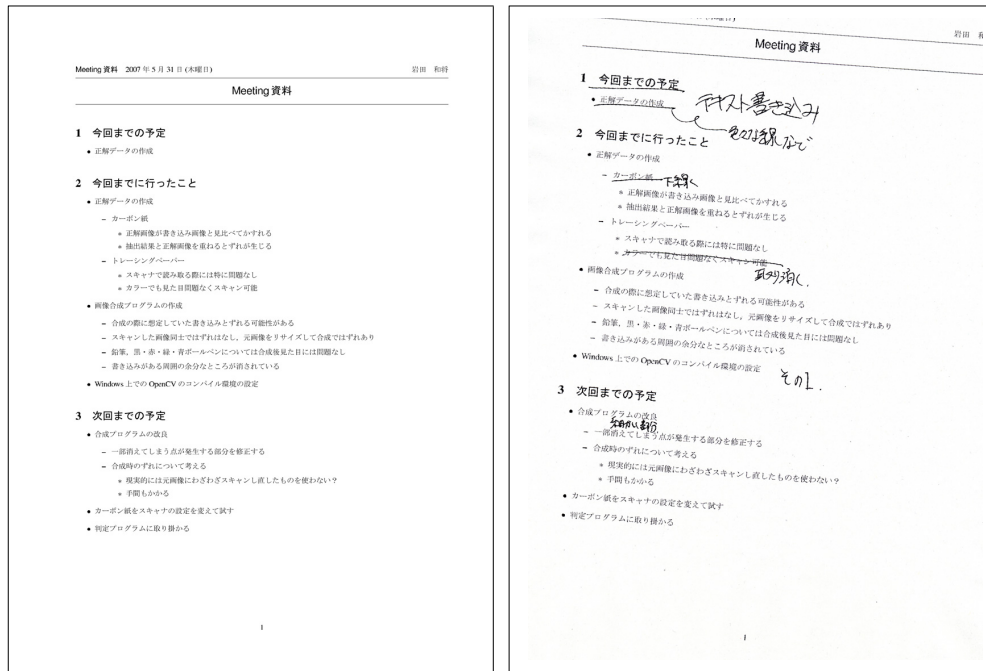 Meeting 資料 2007 年 5 月 31 日 (木曜日) 岩田 和将
Meeting 資料
1 今回までの予定
• 正解データの作成
2 今回までに行ったこと
• 正解データの作成
– カーボン紙
* 正解画像が書き込み画像と見比べてかすれる
* 抽出結果と正解画像を重ねるとずれが生じる
– トレーシングペーパー
* スキャナで読み取る際には特に問題なし
* カラーでも見た目問題なくスキャン可能
• 画像合成プログラムの作成
– 合成の際に想定していた書き込みとずれる可能性がある
– スキャンした画像同士ではずれはなし,元画像をリサイズして合成ではずれあり
– 鉛筆,黒・赤・緑・青ボールペンについては合成後見た目には問題なし
– 書き込みがある周囲の余分なところが消されている
• Windows 上での OpenCV のコンパイル環境の設定
3 次回までの予定
• 合成プログラムの改良
– 一部消えてしまう点が発生する部分を修正する
– 合成時のずれについて考える
* 現実的には元画像にわざわざスキャンし直したものを使わない?
* 手間もかかる
• カーボン紙をスキャナの設定を変えて試す
• 判定プログラムに取り掛かる
1
岩田
Meeting 資料
1 今回までの予定
• 正解データの作成 テキスト書き込み
色々な線など
2 今回までに行ったこと
• 正解データの作成
– カーボン紙 下線く
* 正解画像が書き込み画像と見比べてかすれる
* 抽出結果と正解画像を重ねるとずれが生じる
– トレーシングペーパー
* スキャナで読み取る際には特に問題なし
* カラーでも見た目問題なくスキャン可能
• 画像合成プログラムの作成
– 合成の際に想定していた書き込みとずれる可能性がある
– スキャンした画像同士ではずれはなし,元画像をリサイズして合成ではずれあり
– 鉛筆,黒・赤・緑・青ボールペンについては合成後見た目には問題なし
– 書き込みがある周囲の余分なところが消されている
• Windows 上での OpenCV のコンパイル環境の設定 その1.
3 次回までの予定
• 合成プログラムの改良
– 一部消えてしまう点が発生する部分を修正する
– 合成時のずれについて考える
* 現実的には元画像にわざわざスキャンし直したものを使わない?
* 手間もかかる
• カーボン紙をスキャナの設定を変えて試す
• 判定プログラムに取り掛かる
1